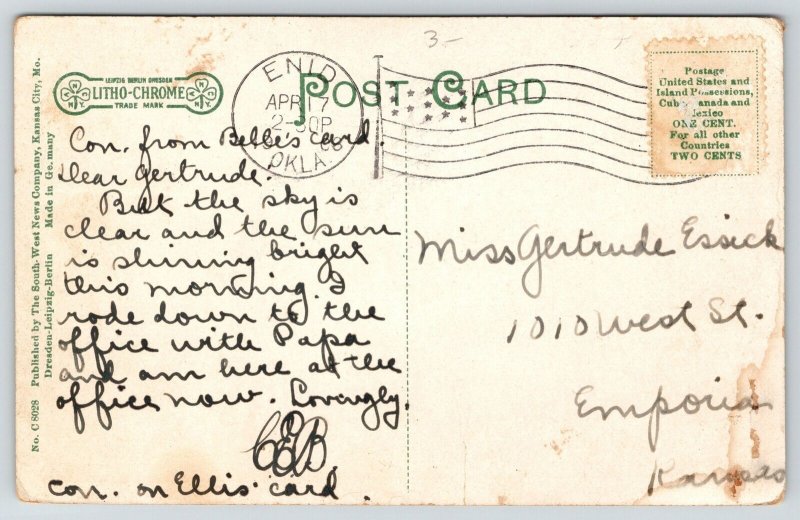 3-
No. C 8028 Published by The South-West News Company, Kansas City, Mo.
Dresden-Leipzig-Berlin Made in Germany
LEIPZIG BERLIN DRESDEN
LITHO-CHROME
TRADE MARK
POST CARD
ENID
APR 17
2-30P
OKLA.
Postage
United States and
Island Possessions,
Cuba Canada and
Mexico
ONE CENT.
For all other
Countries
TWO CENTS
Con. from Belle's card.
Dear Gertrude.
But the sky is
clear and the sun
is shining bright
this morning. I
rode down to the
office with Papa
and am here at the
office now. Lovingly,
CEB.
con. on Ellis' card.
Miss Gertrude Essick
1010 West St.
Emporia
Kansas